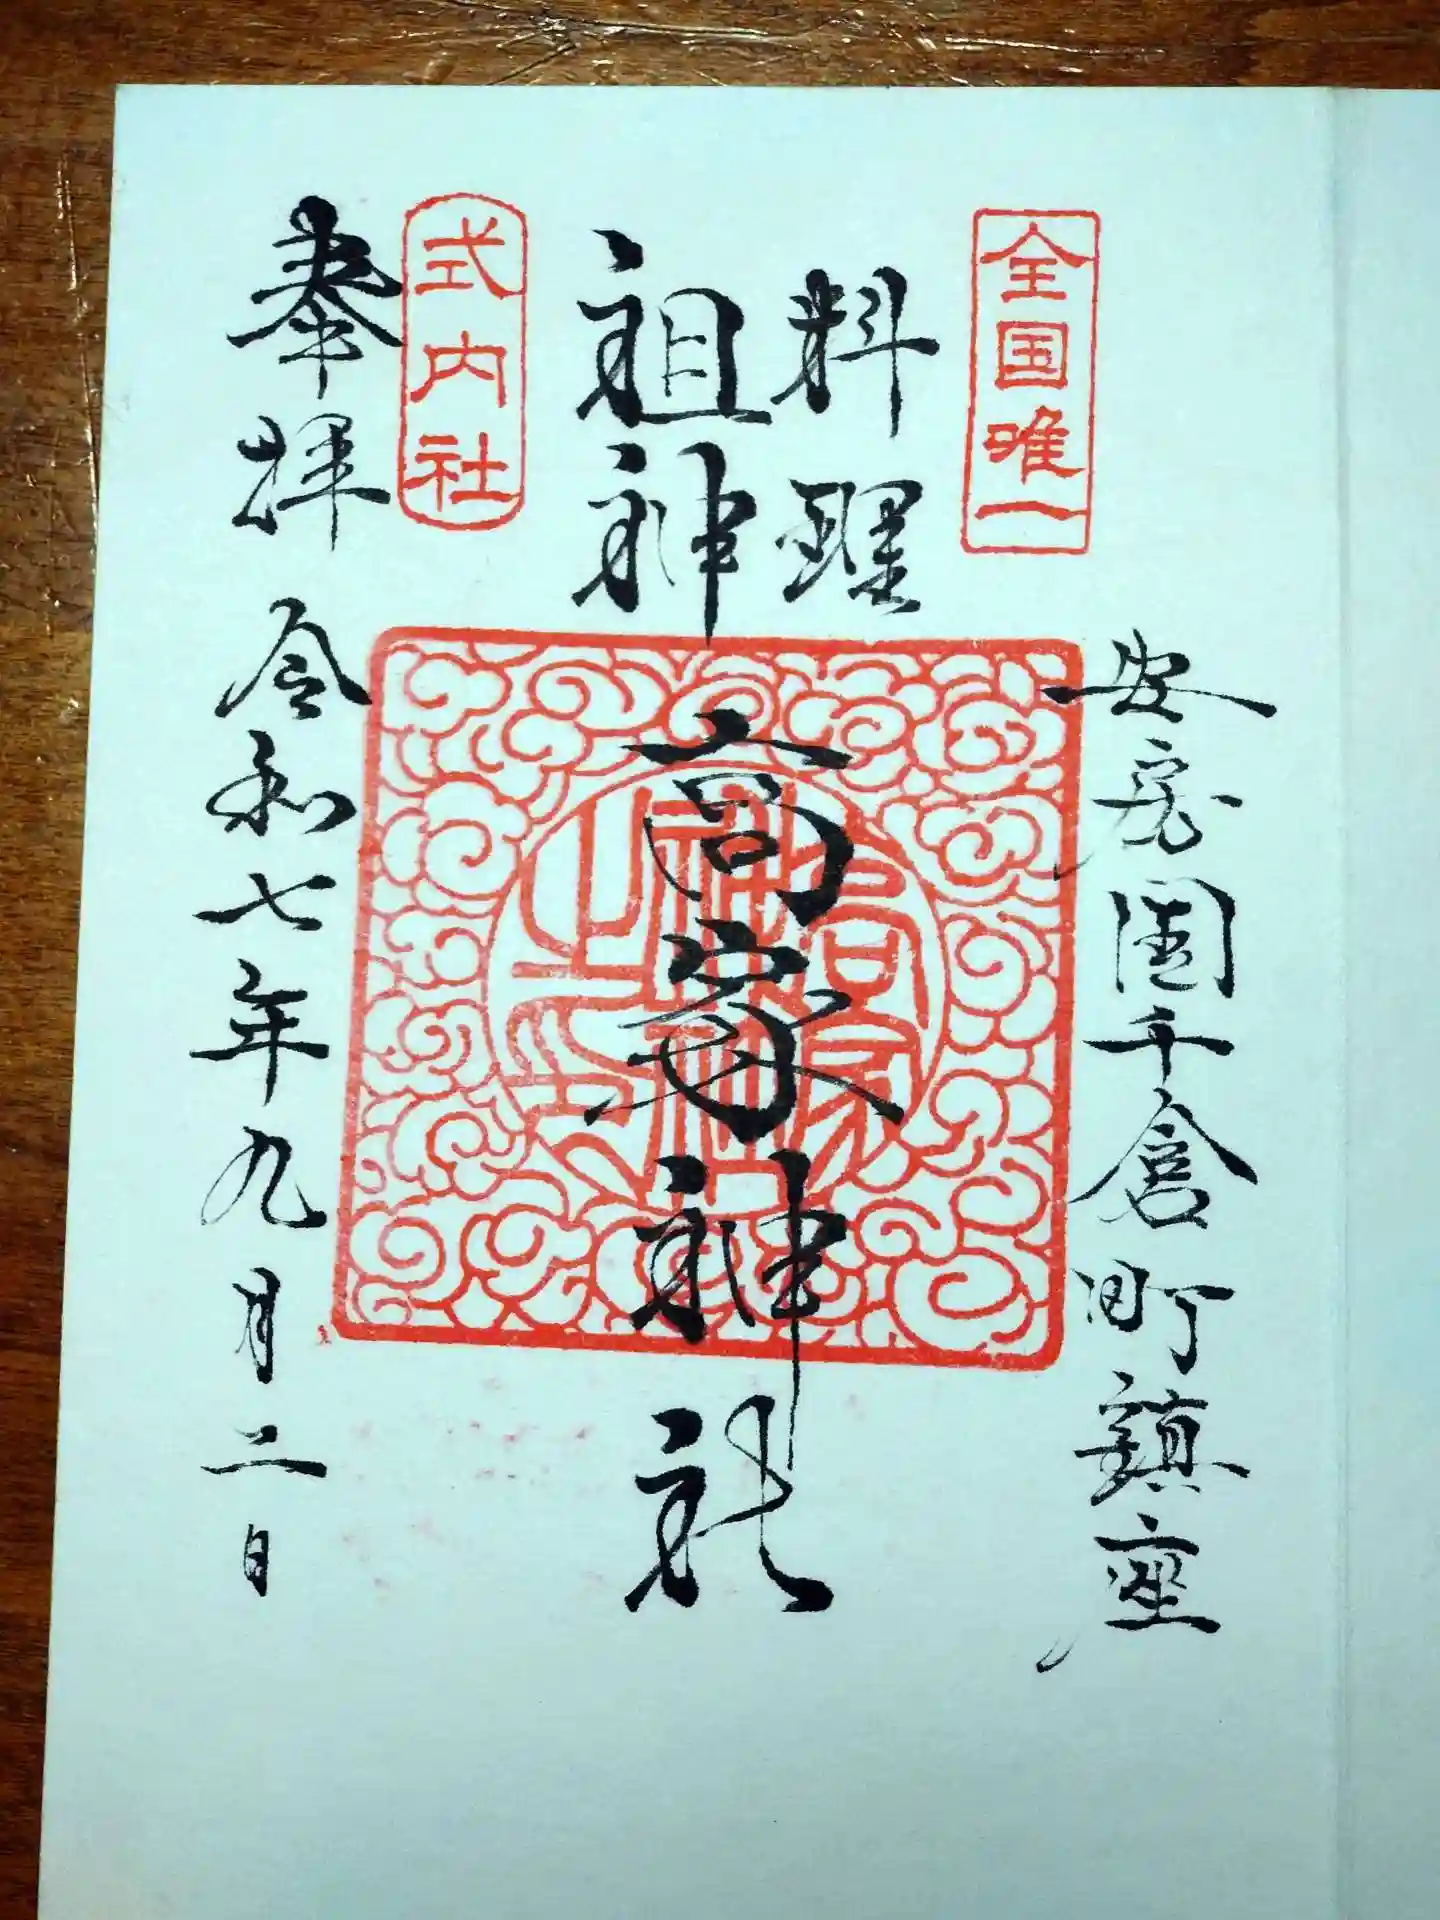 全国唯一
安房国千倉町鎮座
料理
祖神
高家神社
式内社
奉拝
令和七年九月二日
高家
神社
之印